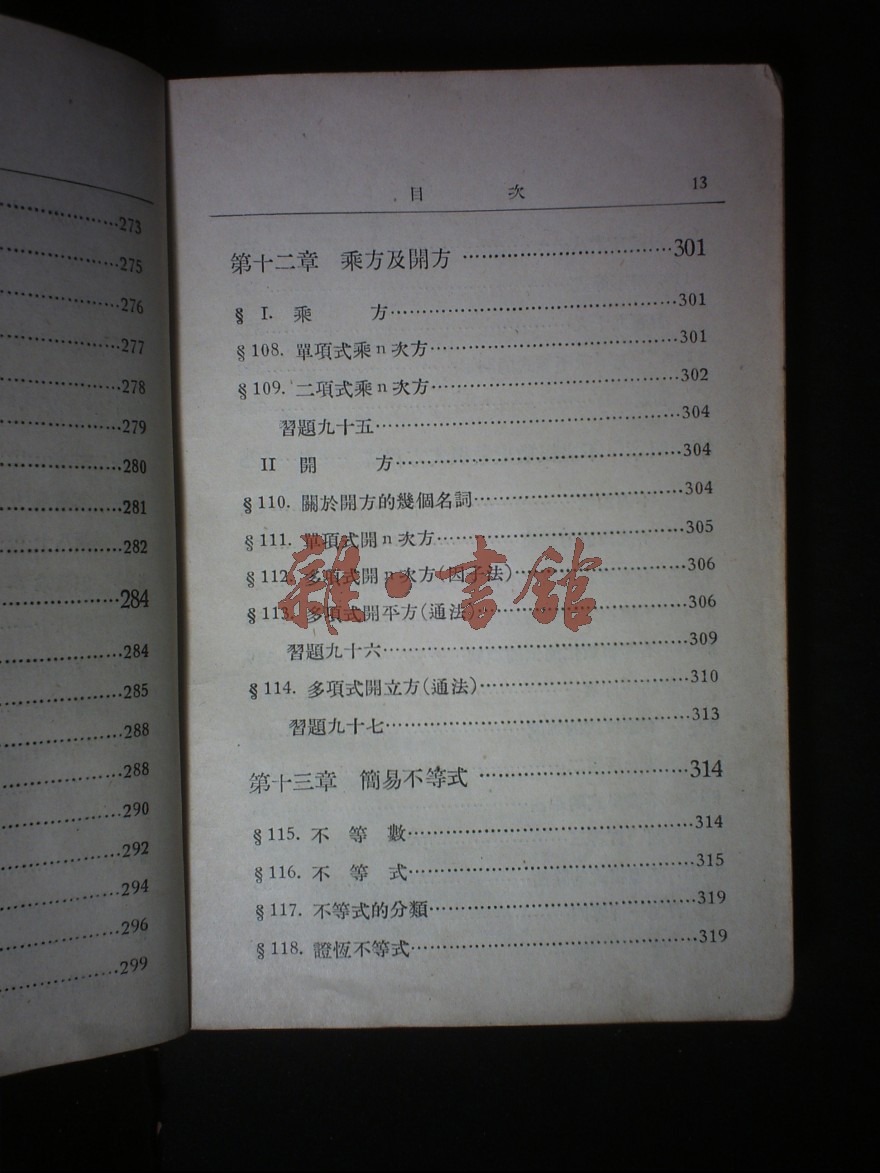 273
275
276
277
278
279
280
281
282
284
284
285
288
288
290
292
294
296
299
目 次 13
第十二章 乘方及開方 301
§ I. 乘 方 301
§108. 單項式乘n次方 301
§109. 二項式乘n次方 302
習題九十五 304
II 開 方 304
§110. 關於開方的幾個名詞 304
§111. 單項式開n次方 305
§112. 多項式開n次方(因子法) 306
§113. 多項式開平方(通法) 306
習題九十六 309
§114. 多項式開立方(通法) 310
習題九十七 313
第十三章 簡易不等式 314
§115. 不 等 數 314
§116. 不 等 式 315
§117. 不等式的分類 319
§118. 證恆不等式 319
雜·書館